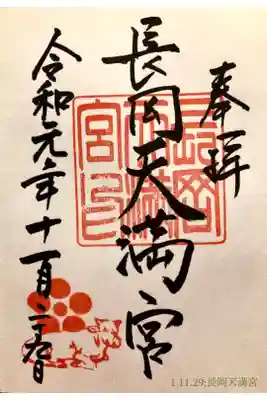 奉拝
長岡天満宮
令和元年十一月二十九日
長岡
天満
宮印
1.11.29:長岡天満宮